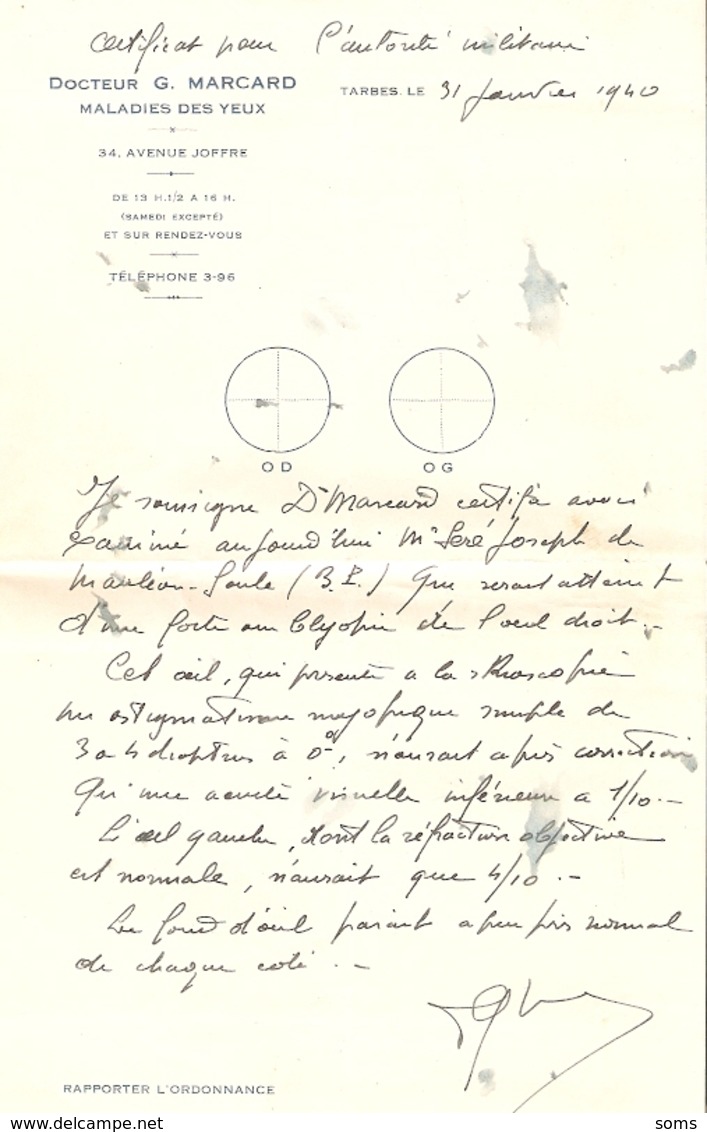 Certificat pour l'autorité militaire
DOCTEUR G. MARCARD
MALADIES DES YEUX
TARBES, LE 31 Janvier 1940
34, AVENUE JOFFRE
DE 13 H.1/2 A 16 H.
(SAMEDI EXCEPTÉ)
ET SUR RENDEZ-VOUS
TÉLÉPHONE 3-96
OD OG
Je soussigné Dr Marcard certifie avoir
examiné aujourd'hui Mr Seré Joseph de
Mauléon-Soule (B.P.) Qui serait atteint
d'une forte amblyopie de l'oeil droit.-
Cet oeil, qui présente à la skiascopie
un astigmatisme myopique simple de
3 a 4 dioptries à 0°, n'aurait après correction
Qu'une acuité visuelle inférieure a 1/10.-
L'oeil gauche, dont la réfraction objective
est normale, n'aurait que 4/10.-
Le fond d'oeil parait a peu près normal
de chaque coté.-
RAPPORTER L'ORDONNANCE
delcampe.net
soms